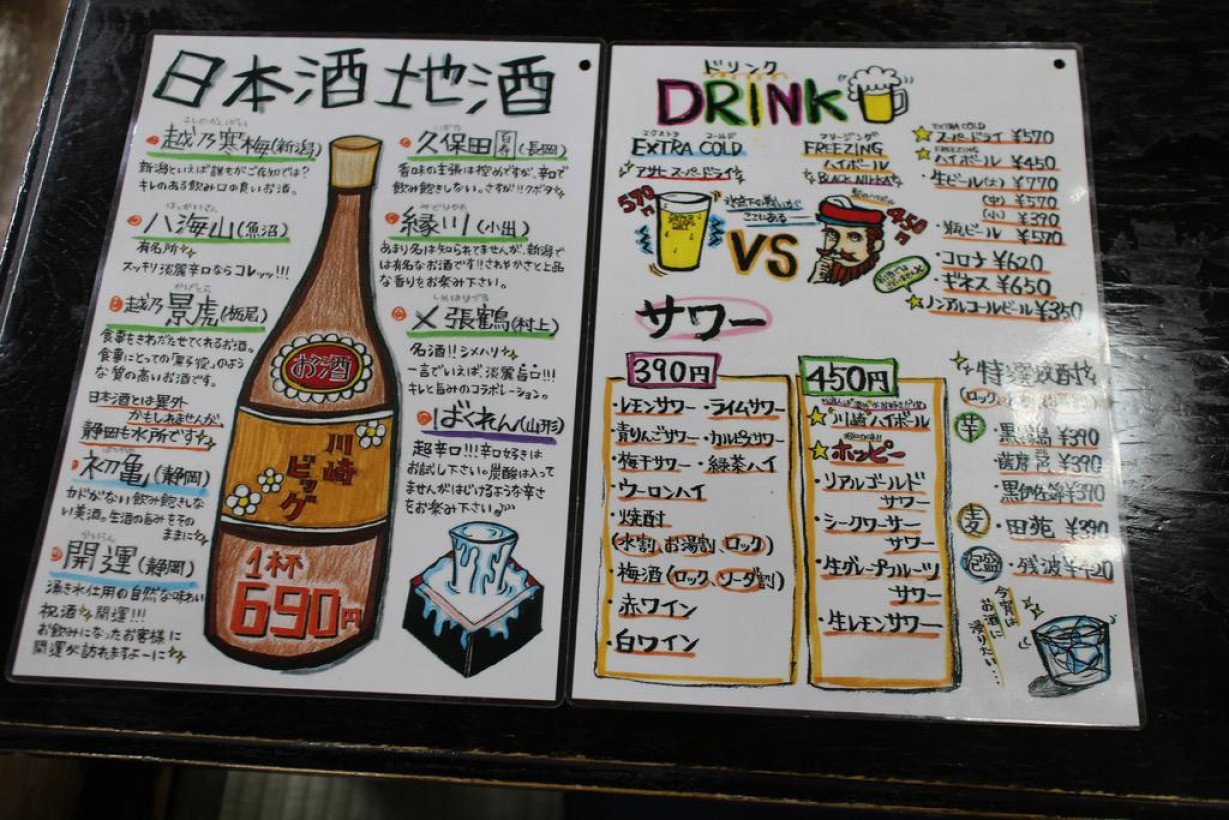 日本酒 地酒
こしのかんばい
越乃寒梅(新潟)
新潟といえば誰もがご存知では?
キレのある飲み口の良いお酒。
はっかいさん
八海山(魚沼)
有名所
スッキリ淡麗辛口ならコレッッ!!!
かげとら
越乃景虎(栃尾)
食事をきわだたせてくれるお酒。
食事にとっての「黒子役」のよう
な質の高いお酒です。
日本酒とは意外
かもしれませんが、
静岡も水所です
初亀(静岡)
カドがない飲み飽きしな
い美酒。生酒の旨みをその
ままに
かいうん
開運(静岡)
湧き水仕用の自然な味わい
祝酒 開運!!!
お飲みになったお客様に
開運が訪れますよーに
お酒
川崎
ビッグ
1杯
690円
くぼた
久保田 百寿 (長岡)
香味の主張は控めですが、辛口で
飲み飽きしない。さすが!!クボタ
みどりかわ
縁川(小出)
あまり名は知られてませんが、新潟で
は有名なお酒です!!さわやかさと上品
な香りをお楽み下さい。
しめはりづる
〆張鶴(村上)
名酒!!シメハリ
一言でいえば、淡麗旨口!!!
キレと旨みのコラボレーション。
ばくれん(山形)
超辛口!!!辛口好きは
お試し下さい。炭酸は入って
ませんがはじけるような辛さ
をお楽み下さい。
ドリンク
DRINK
エクストラ コールド
EXTRA COLD
アサヒ スーパードライ
570円
フリージング
FREEZING
ハイボール
BLACK NIKKA
氷点下の戦いが
ここにある
VS
450円
EXTRA COLD
スーパードライ ¥570
FREEZING
ハイボール ¥450
・生ビール(大) ¥770
(中) ¥570
(小) ¥390
・瓶ビール ¥570
・コロナ ¥620
・ギネス ¥650
ノンアルコールビール ¥350
サワー
390円
・レモンサワー ・ライムサワー
・青りんごサワー ・カルピスサワー
・梅干サワー ・緑茶ハイ
・ウーロンハイ
・焼酎
(水割、お湯割、ロック)
・梅酒(ロック ソーダ割)
・赤ワイン
・白ワイン
450円
川崎ハイボール
ホッピー
・リアルゴールド
サワー
・シークワーサー
サワー
・生グレープフルーツ
サワー
・生レモンサワー
特選焼酎
芋
・黒霧島 ¥390
¥390
黒伊佐錦 ¥390
麦
・田苑 ¥390
泡盛
・残波 ¥420
今宵は
お酒に
浸りたい…